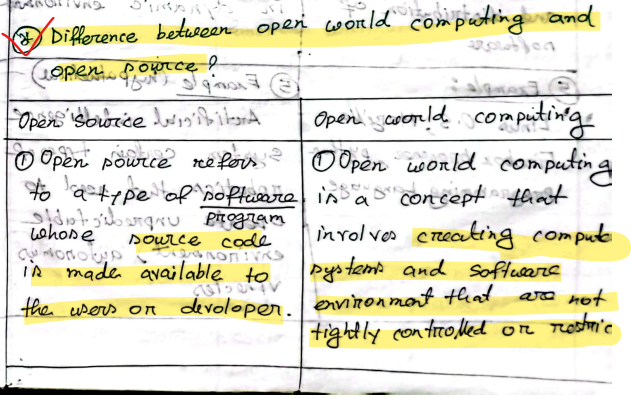 Difference between open world computing and
open source?
Open source
Open world computing
① Open source refers
to a type of software
program
whose source code
is made available to
the users or devoloper.
① Open world computing
is a concept that
involves creating compute
systems and software
environment that are not
tightly controlled or restric